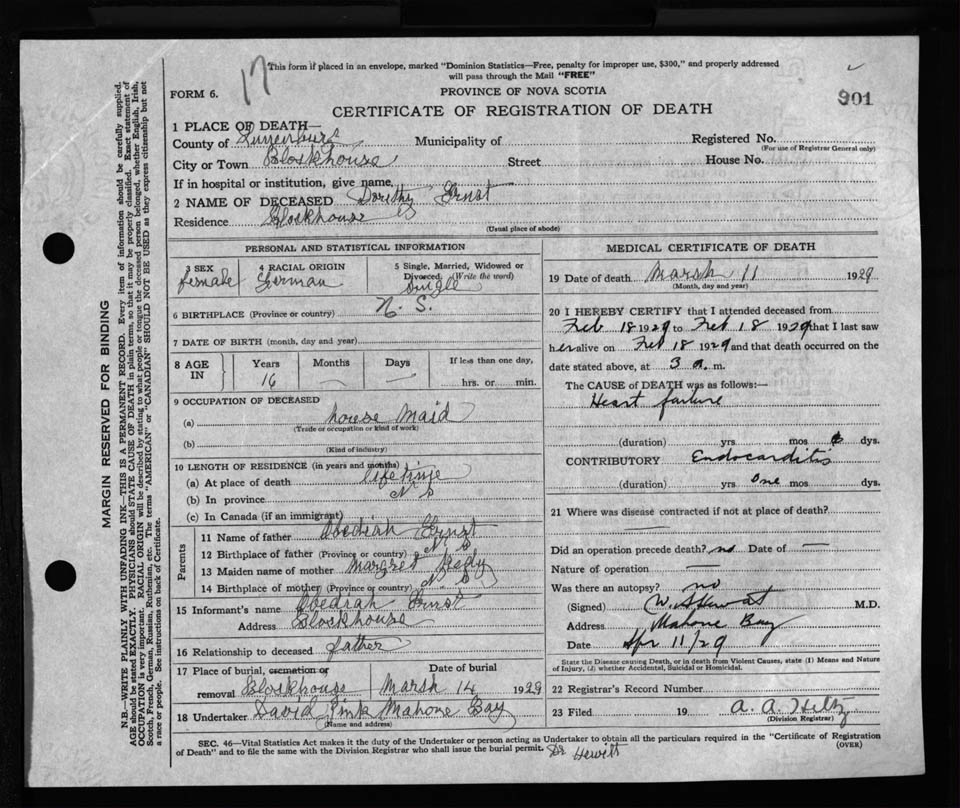 17
This form if placed in an envelope, marked "Dominion Statistics—Free, penalty for improper use, $300," and properly addressed
will pass through the Mail "FREE"
FORM 6.
PROVINCE OF NOVA SCOTIA
901
CERTIFICATE OF REGISTRATION OF DEATH
1 PLACE OF DEATH—
County of Lunenburg Municipality of Registered No.
(For use of Registrar General only)
City or Town Blockhouse Street House No.
If in hospital or institution, give name,
2 NAME OF DECEASED Dorothy Ernst
Residence Blockhouse
(Usual place of abode)
PERSONAL AND STATISTICAL INFORMATION
3 SEX female
4 RACIAL ORIGIN German
5 Single, Married, Widowed or Divorced (Write the word) Single
6 BIRTHPLACE (Province or country) N. S.
7 DATE OF BIRTH (month, day and year)
8 AGE IN Years 16 Months — Days — If less than one day, hrs. or min.
9 OCCUPATION OF DECEASED
(a) house Maid
(Trade or occupation or kind of work)
(b)
(Kind of industry)
10 LENGTH OF RESIDENCE (in years and months)
(a) At place of death life time
(b) In province N S
(c) In Canada (if an immigrant)
Parents
11 Name of father Obediah Ernst
12 Birthplace of father (Province or country) N S
13 Maiden name of mother Margret
14 Birthplace of mother (Province or country) N S
15 Informant's name Obediah Ernst
Address Blockhouse
16 Relationship to deceased father
17 Place of burial, cremation or removal Blockhouse Date of burial Marsh 14 1929
18 Undertaker David Zink Mahone Bay
(Name and address)
MEDICAL CERTIFICATE OF DEATH
19 Date of death Marsh 11 1929
(Month, day and year)
20 I HEREBY CERTIFY that I attended deceased from
Feb 18 1929 to Feb 18 1929 that I last saw
her alive on Feb 18 1929 and that death occurred on the
date stated above, at 3 a. m.
The CAUSE of DEATH was as follows:—
Heart failure
(duration) yrs. mos. dys.
CONTRIBUTORY Endocarditis
(duration) yrs. One mos. dys.
21 Where was disease contracted if not at place of death?
Did an operation precede death? no Date of —
Nature of operation —
Was there an autopsy? no
(Signed) M.D.
Address Mahone Bay
Date Apr 11/29
State the Disease causing Death, or in death from Violent Causes, state (1) Means and Nature
of Injury, (2) whether Accidental, Suicidal or Homicidal.
22 Registrar's Record Number
23 Filed 19 A. A. Hiltz
(Division Registrar)
SEC. 46—Vital Statistics Act makes it the duty of the Undertaker or person acting as Undertaker to obtain all the particulars required in the "Certificate of Registration
of Death" and to file the same with the Division Registrar who shall issue the burial permit.
(OVER)
Dr Hewitt
MARGIN RESERVED FOR BINDING
N.B.—WRITE PLAINLY WITH UNFADING INK—THIS IS A PERMANENT RECORD. Every item of information should be carefully supplied.
AGE should be stated EXACTLY. PHYSICIANS should STATE CAUSE OF DEATH in plain terms, so that it may be properly classified. Exact statement of
OCCUPATION is very important. RACIAL ORIGIN will be described by stating to what people or tongue the deceased person belonged, whether English, Irish,
Scotch, French, German, Russian, Ruthenian, etc. The terms "AMERICAN" or "CANADIAN" SHOULD NOT BE USED as they express citizenship but not
a race or people. See instructions on back of Certificate.